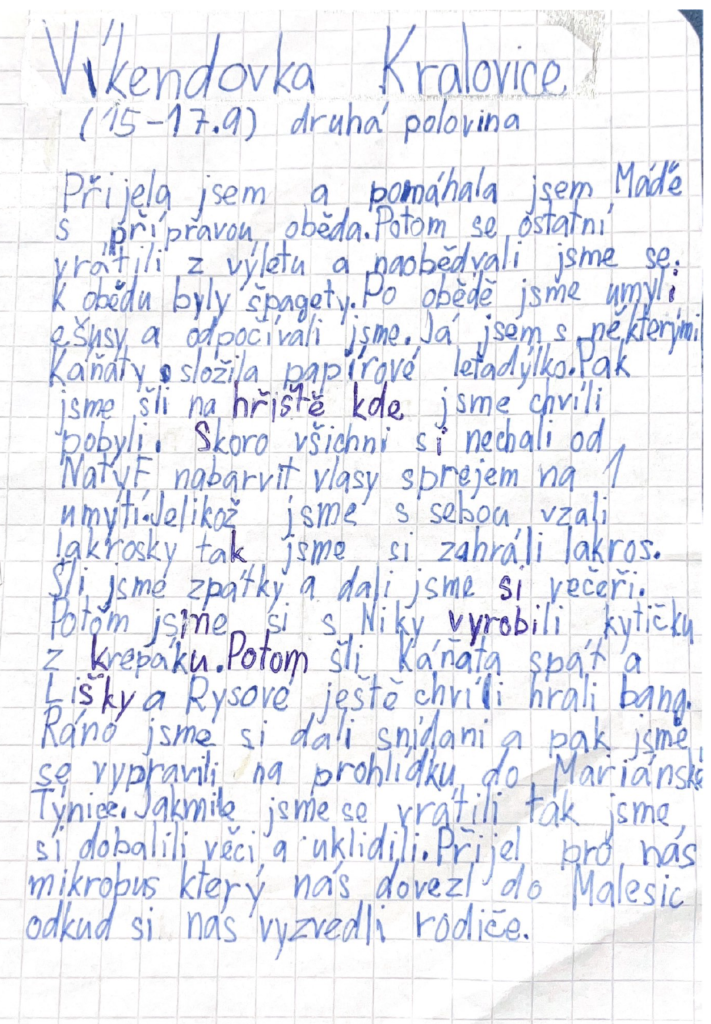 Víkendovka Kralovice
(15-17.9) druhá polovina
Přijela jsem a pomáhala jsem Mádě
s přípravou oběda. Potom se ostatní
vrátili z výletu a naobědvali jsme se.
K obědu byly špagety. Po obědě jsme umyli
ešusy a odpočívali jsme. Já jsem s některými
Káňaty složila papírové letadýlko. Pak
jsme šli na hřiště kde jsme chvíli
pobyli. Skoro všichni si nechali od
NatyF nabarvit vlasy sprejem na 1
umytí. Jelikož jsme s sebou vzali
lakrosky tak jsme si zahráli lakros.
Šli jsme zpátky a dali jsme si večeři.
Potom jsme si s Niky vyrobili kytičku
z krepáku. Potom šli Káňata spát a
Lišky a Rysové ještě chvíli hráli bang.
Ráno jsme si dali snídani a pak jsme
se vypravili na prohlídku do Mariánské
Týnice. Jakmile jsme se vrátili tak jsme
si dobalili věci a uklidili. Přijel pro nás
mikrobus který nás dovezl do Malesic
odkud si nás vyzvedli rodiče.